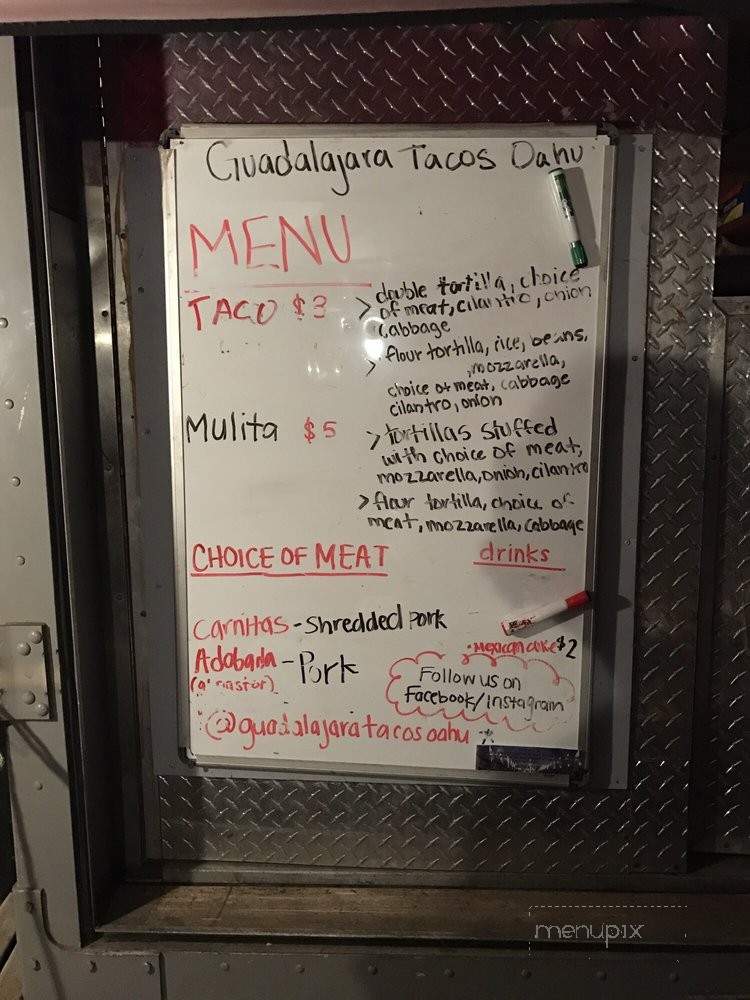 Guadalajara Tacos Oahu
MENU
TACO $3 > double tortilla, choice
of meat, cilantro, onion
cabbage
> flour tortilla, rice, beans,
, mozzarella,
choice of meat, cabbage
cilantro, onion
Mulita $5 > tortillas stuffed
with choice of meat,
mozzarella, onion, cilantro
> flour tortilla, choice of
meat, mozzarella, cabbage
CHOICE OF MEAT
drinks
Carnitas - shredded pork
• Mexican coke $2
Adobada - Pork
(al pastor)
Follow us on
Facebook/instagram
@guadalajaratacosoahu
menupix